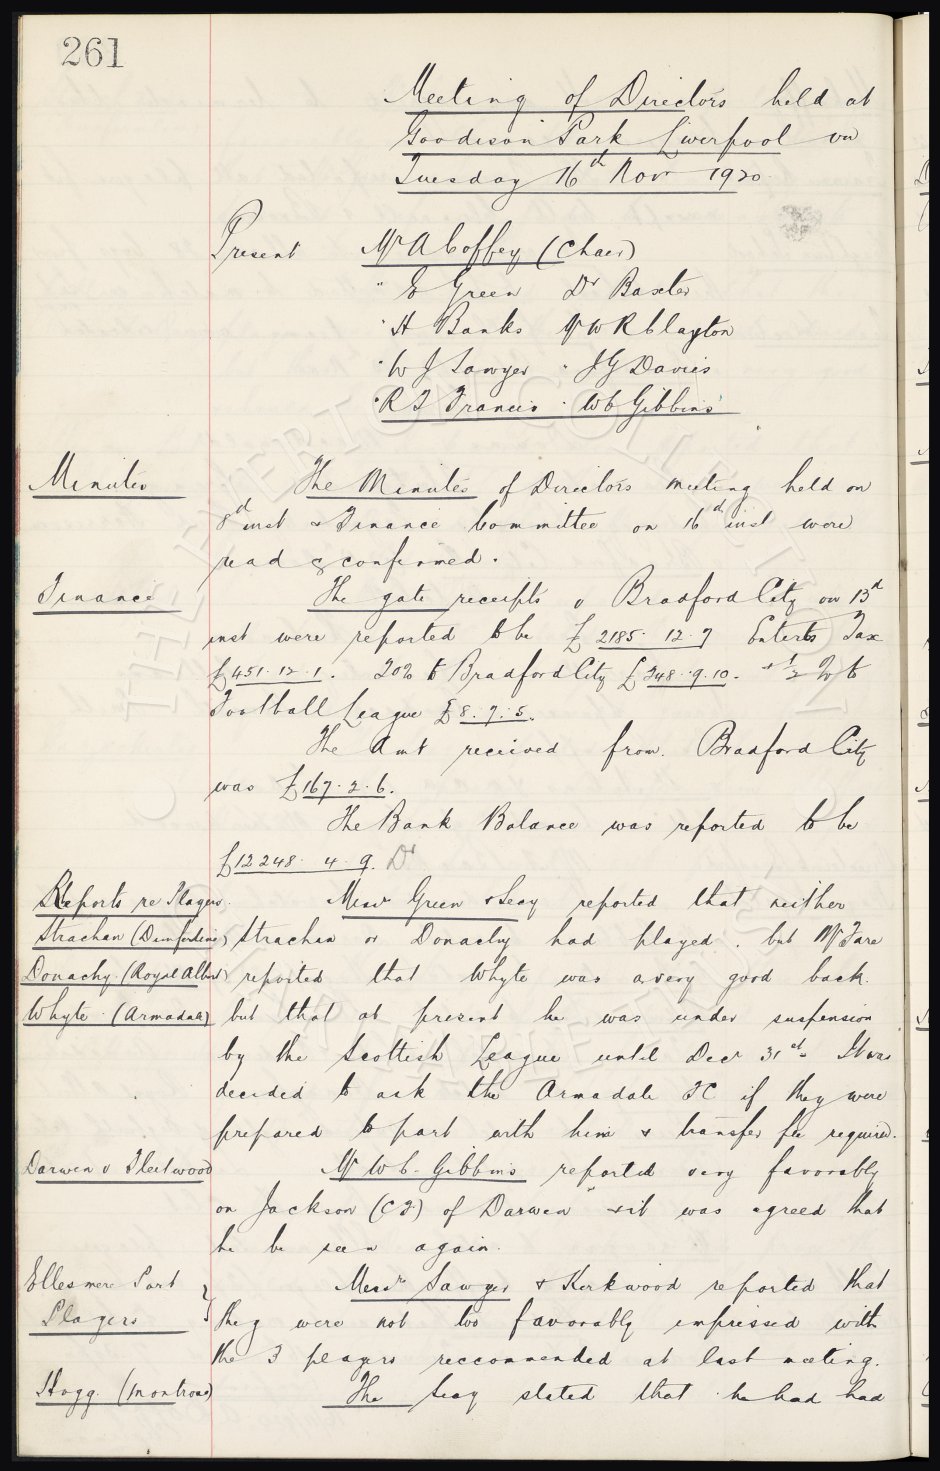 261
Meeting of Directors held at
Goodison Park Liverpool on
Tuesday 16th Nov 1920
Present Mr A Coffey (Chair)
" E Green Dr Baxter
" H Banks Mr W R Clayton
" W J Sawyer " J G Davies
" R T Francis " W C Gibbins
Minutes The Minutes of Directors meeting held on
8th inst & Finance Committee on 16th inst were
read & confirmed.
Finance The gate receipts v Bradford City on 13th
inst were reported to be £2185. 12. 7 Enterts Tax
£451. 12. 1. 20% to Bradford City £348. 9. 10. & ½ % to
Football League £8. 7. 5.
The Amt received from Bradford City
was £167. 2. 6.
The Bank Balance was reported to be
£12248. 4. 9. Dr
Reports re Players. Messrs Green & Secy reported that neither
Strachan (Dunfermline) Strachan or Donachy had played. but Mr Fare
Donachy (Royal Albert) reported that Whyte was a very good back.
Whyte. (Armadale) but that at present he was under suspension
by the Scottish League until Decr 31st. It was
decided to ask the Armadale FC if they were
prepared to part with him & transfer fee required.
Darwen v Fleetwood Mr W C Gibbins reported very favorably
on Jackson (CF) of Darwen & it was agreed that
he be seen again.
Ellesmere Port Messrs Sawyer & Kirkwood reported that
Players they were not too favorably impressed with
the 3 players reccommended at last meeting.
Hogg. (Montrose) The Secy stated that he had had